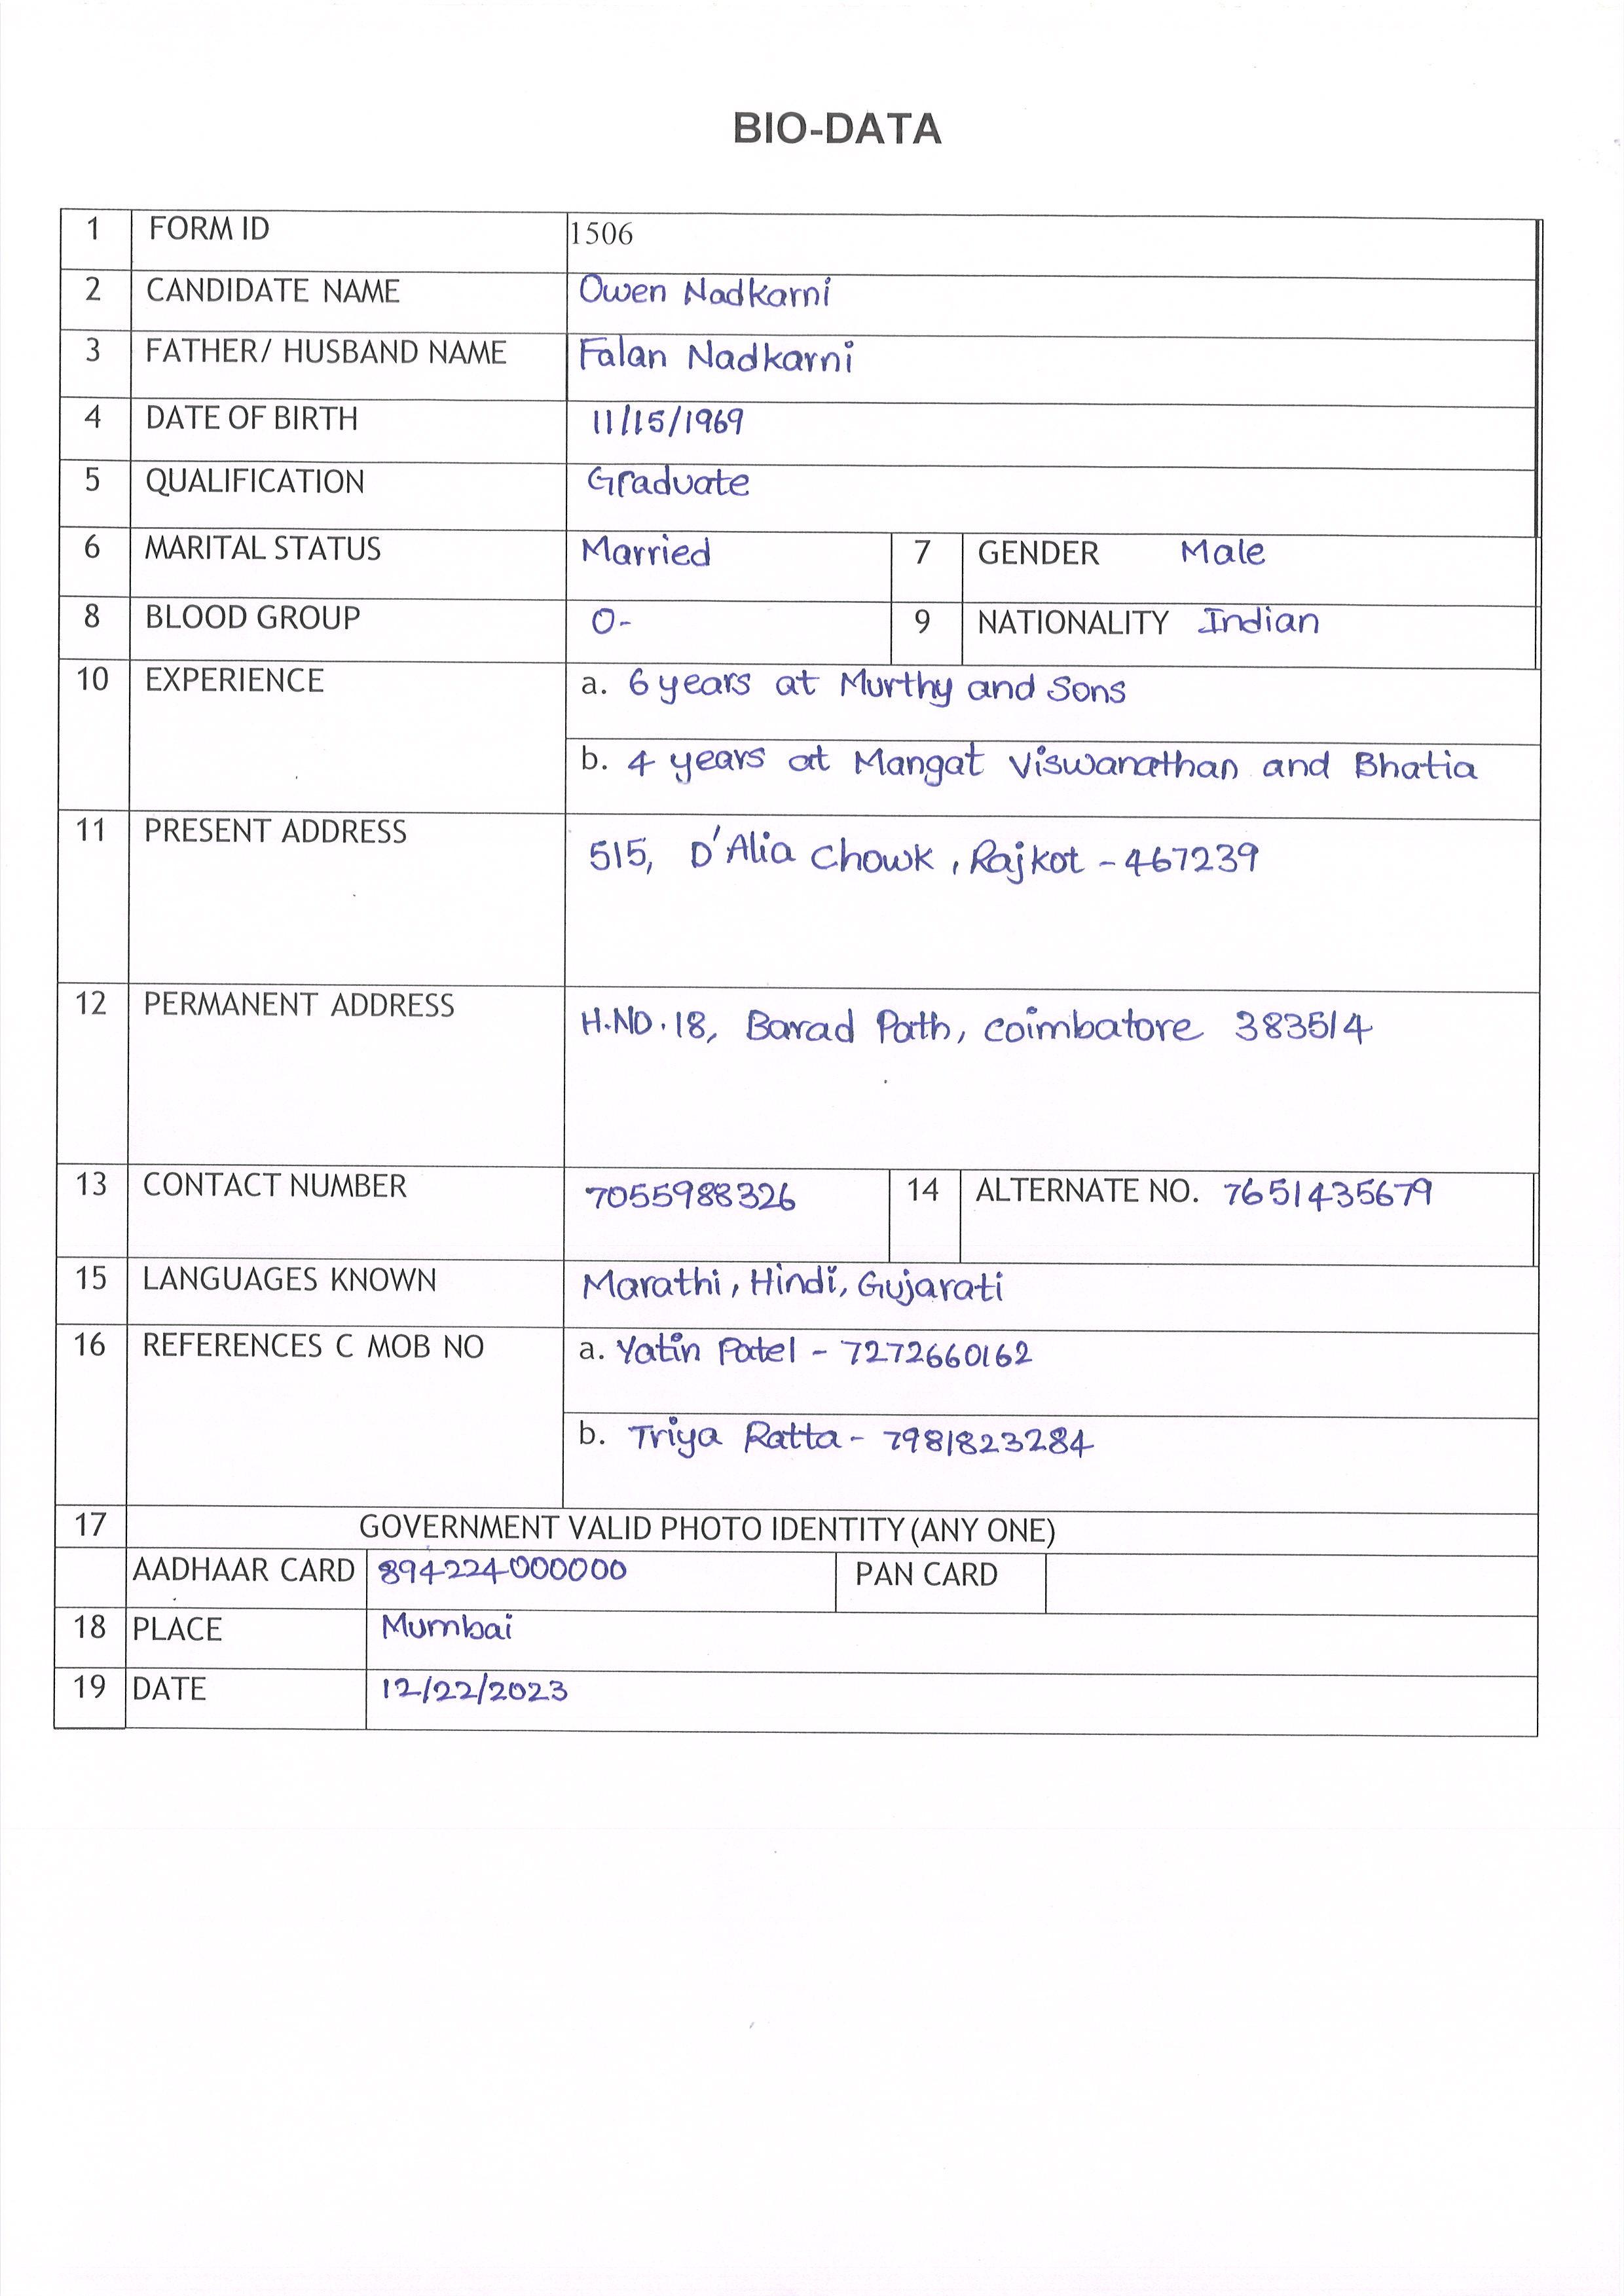 BIO-DATA
1 FORM ID 1506
2 CANDIDATE NAME Owen Nadkarni
3 FATHER/ HUSBAND NAME Falan Nadkarni
4 DATE OF BIRTH 11/15/1969
5 QUALIFICATION Graduate
6 MARITAL STATUS Married 7 GENDER Male
8 BLOOD GROUP O- 9 NATIONALITY Indian
10 EXPERIENCE a. 6 years at Murthy and Sons
b. 4 years at Mangat Viswanathan and Bhatia
11 PRESENT ADDRESS 515, D'Alia Chowk, Rajkot - 467239
12 PERMANENT ADDRESS H.NO. 18, Barad Path, Coimbatore 383514
13 CONTACT NUMBER 7055988326 14 ALTERNATE NO. 7651435679
15 LANGUAGES KNOWN Marathi, Hindi, Gujarati
16 REFERENCES C MOB NO a. Yatin Patel - 7272660162
b. Triya Ratta - 7981823284
17 GOVERNMENT VALID PHOTO IDENTITY (ANY ONE)
AADHAAR CARD 894224000000 PAN CARD
18 PLACE Mumbai
19 DATE 12/22/2023